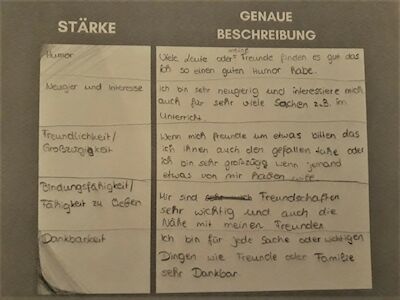 STÄRKE
GENAUE
BESCHREIBUNG
Humor
Viele Leute oder meine Freunde finden es gut das
ich so einen guten Humor habe.
Neugier und Interesse
Ich bin sehr neugierig und interessiere mich
auch für sehr viele Sachen z.B. im
Unterricht.
Freundlichkeit/
Großzügigkeit
Wenn mich freunde um etwas bitten das
ich ihnen auch den gefallen tuhe oder
ich bin sehr großzügig wenn jemand
etwas von mir haben will
Bindungsfähigkeit/
Fähigkeit zu lieben
Mir sind Freundschaften
sehr wichtig und auch die
Nähe mit meinen Freunden
Dankbarkeit
Ich bin für jede Sache oder wichtigen
Dingen wie Freunde oder Familie
sehr Dankbar.